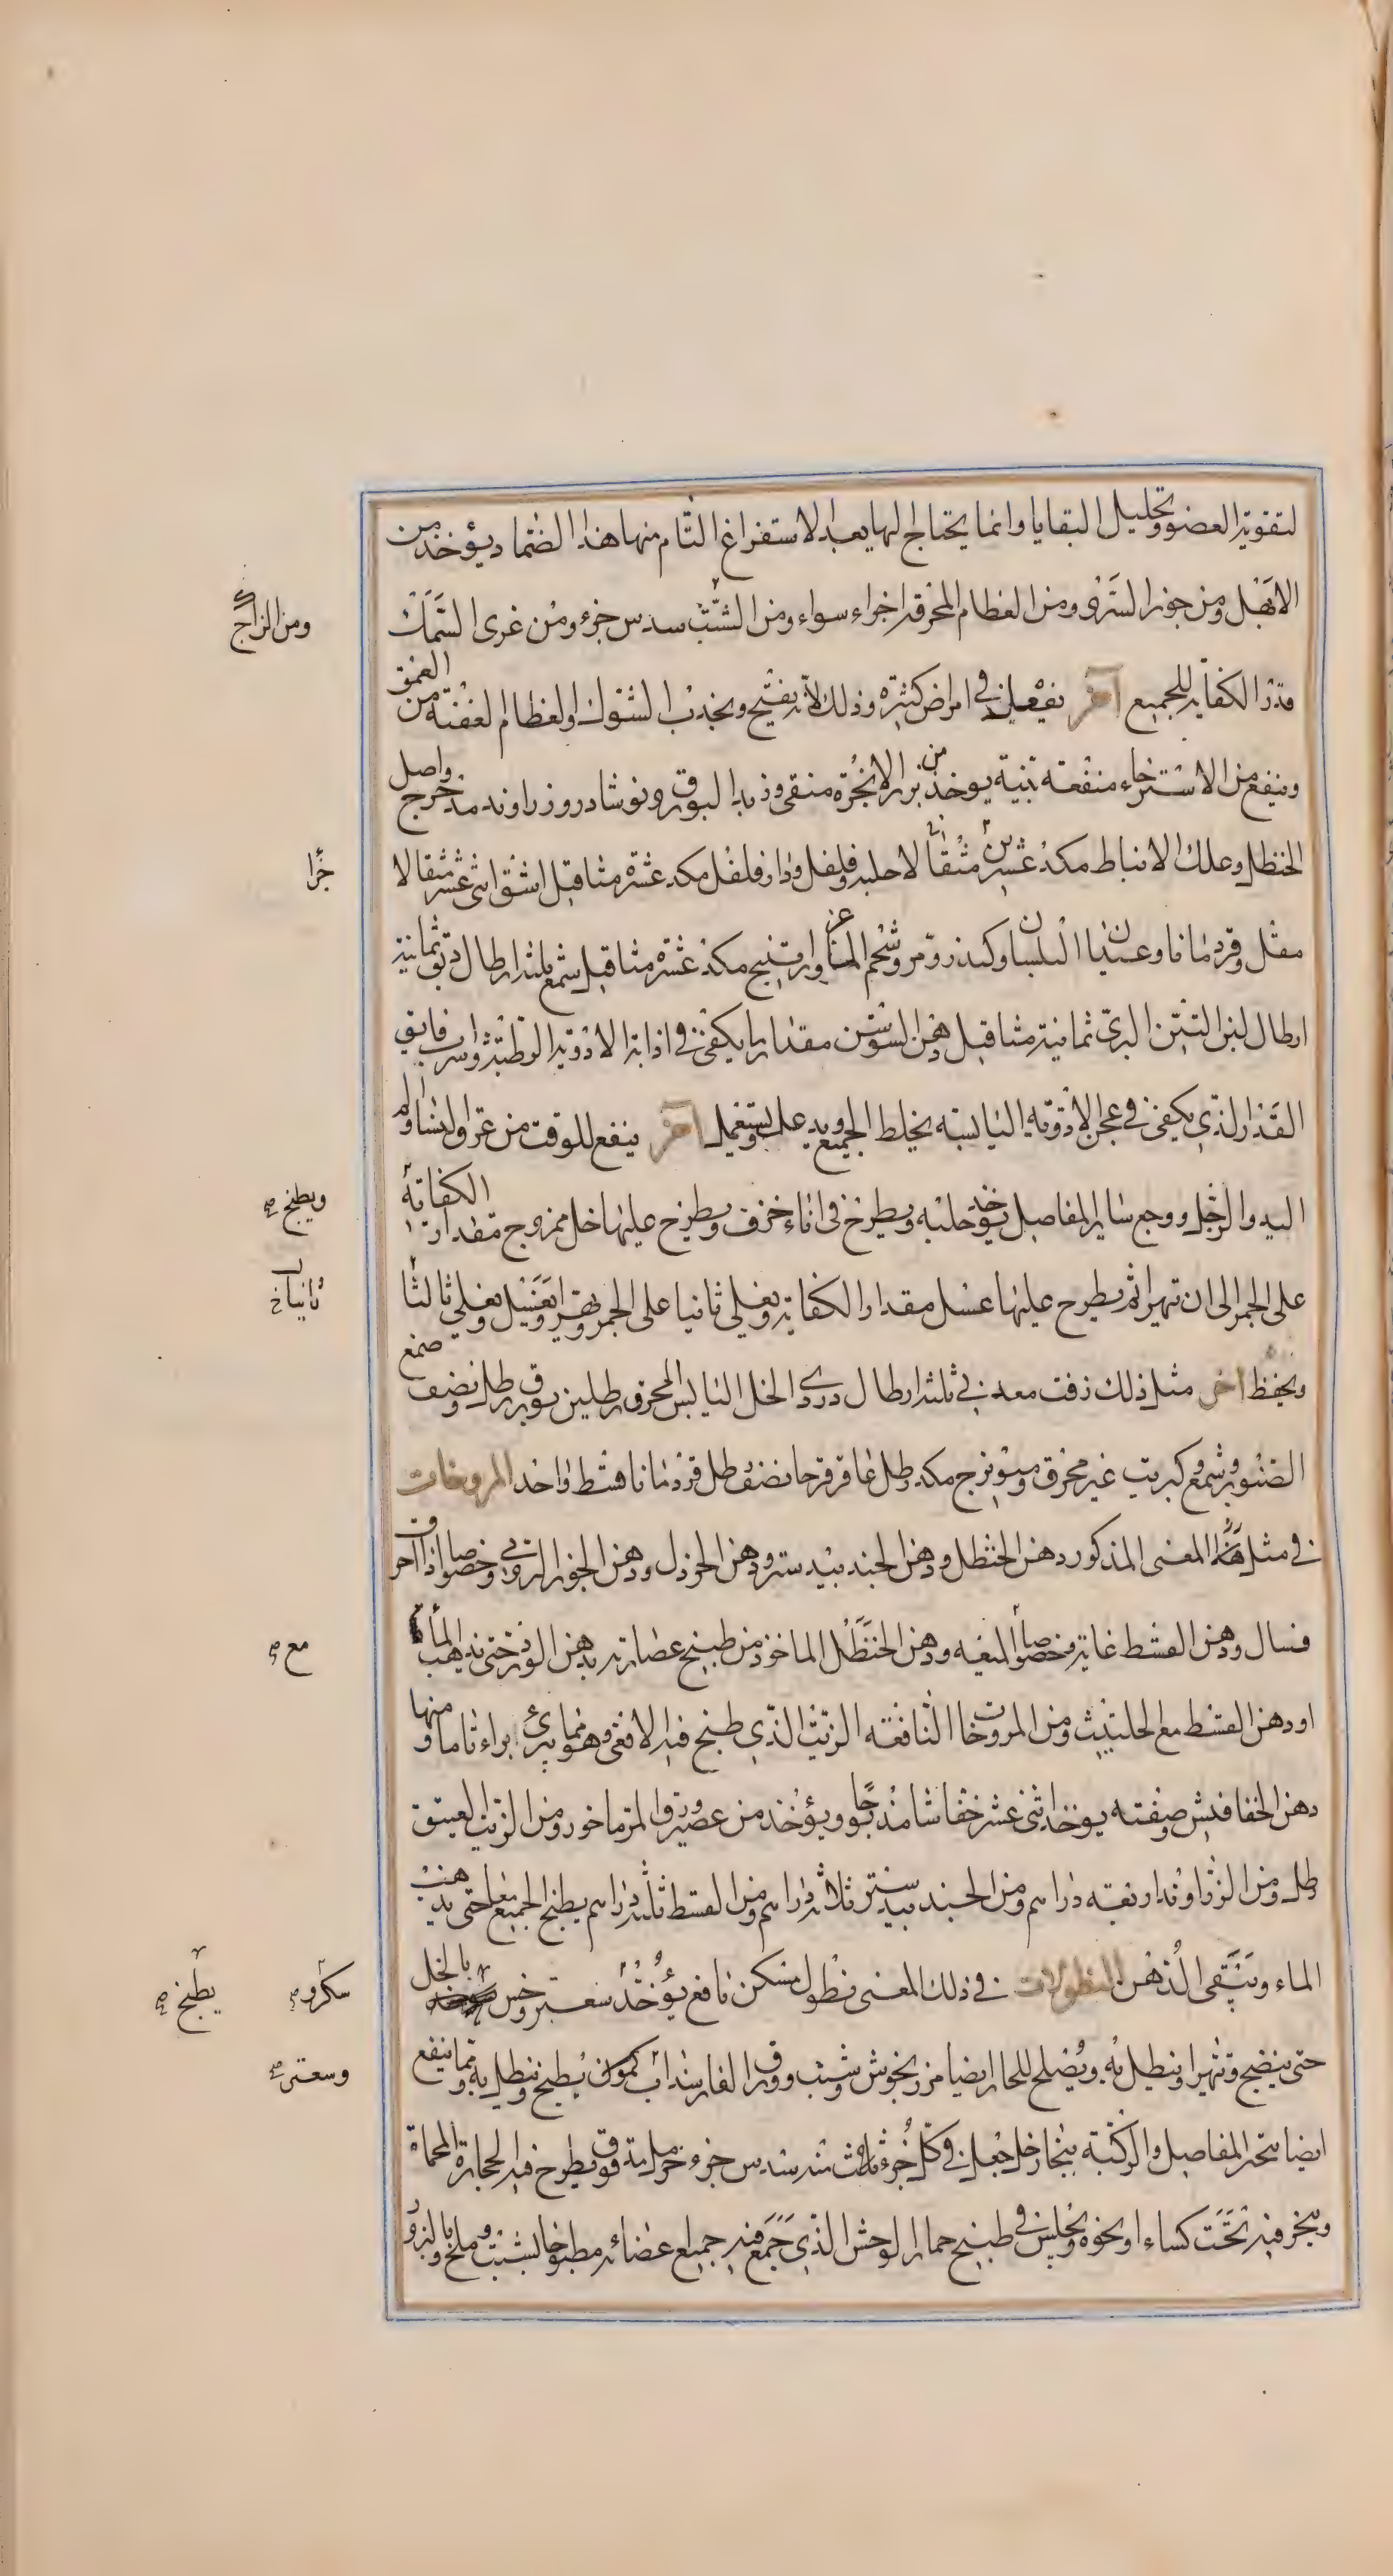 لتقوية العضو وتحليل البقايا وانما يحتاج اليها بعد الاستفراغ التام منها هذا الضماد يؤخذ من
الابهل ومن جوز السرو ومن العظام المحرقة اجزاء سواء ومن الشب سدس جزء ومن غرى السمك
ومن الزاج
قدر الكفاية للجميع آخر نفيعل في امراض كثيرة وذلك لانه يفتح ويجذب الشوك والعظام العفنة من العمق
وينفع من الاسترخاء منفعة بينة يوخذ من بزر الانجرة منقى وزبد البورق ونوشادر وزراوند مدحرج واصل
الحنظل وعلك الانباط مكد عشرين مثقالا حلبه وفلفل ودار فلفل مكد عشرة مثاقيل اشق اثنى عشر مثقالا
جزا
مقل وقردمانا وعيدان البلسان وكندر ومر وشحم الماعز وراتينج مكد عشرة مثاقيل شمع ثلثة ارطال دبق ثمانية
ارطال لبن التين البرى ثمانية مثاقيل دهن السوسن مقدار ما يكفى في اذابة الادوية الرطبة وشراب فايق
القدر الذي يكفى في عجن الادوية اليابسة يخلط الجميع ويدعك ويستعمل آخر ينفع للوقت من عرق النسا والم
اليد والرجل ووجع ساير المفاصل يؤخذ حلبه ويطرح في اناء خزف ويطرح عليها خل ممزوج مقدار الكفاية
ويطبخ صح
على الجمر الى ان تهرا ثم يطرح عليها عسل مقدار الكفاية ويغلى ثانيا على الجمر ويغلي ثالثا
ثانيا خ
ويحفظ اخر مثل ذلك زفت معدنى ثلثة ارطال دردى الخل اليابس المحرق رطلين بورق رطل ونصف صمغ
الصنوبر وشمع وكبريت غير محرق وميويزج مكد رطل عاقرقرحا نصف رطل قردمانا قسط واحد المروخات
في مثل هذا المعنى المذكور دهن الحنظل ودهن الجندبيدستر ودهن الخردل ودهن الجوز الرومى وخصوصا
فسال ودهن القسط غاية وخصوصا الميعه ودهن الحنظل الماخوذ من طبيخ عصارته بدهن الورد حتى يذهب الماء
مع صح
او دهن القسط مع الحلتيت ومن المروخات النافعه الزيت الذي طبخ فيه الافعى وهو مما يبرئ ابراء تاما ومنها
دهن الخفافيش وصفته يوخذ اثنى عشر خفاشا مذبوحا ويؤخذ من عصير ورق المرماخور ومن الزيت العتيق
رطل ومن الزراوند اربعة دراهم ومن الجندبيدستر ثلاثة دراهم ومن القسط ثلثة دراهم يطبخ الجميع معا حتى يذهب
الماء ويبقى الدهن النطولات في ذلك المعنى نطول مسكن نافع يؤخذ سعتر وخس بالخل
سكر صح
يطبخ صح
حتى ينضج وتهرا وينطل به ويصلح للحار ايضا مرزنجوش وشبت وورق الغار سذاب كمون يطبخ وينطل به ومما ينفع
وسعتر صح
ايضا بتخر المفاصل والركبة ببخار خل جعل في كل جزء ثلاث سدس جزء حرمل مدقوق ويطرح فيه الحجارة المحماة
ويبخر فيه تحت كساء او نحوه ويجلس في طبيخ حمار الوحش الذي جمع فيه جميع اعضائه مطبوخا بشبت وملح